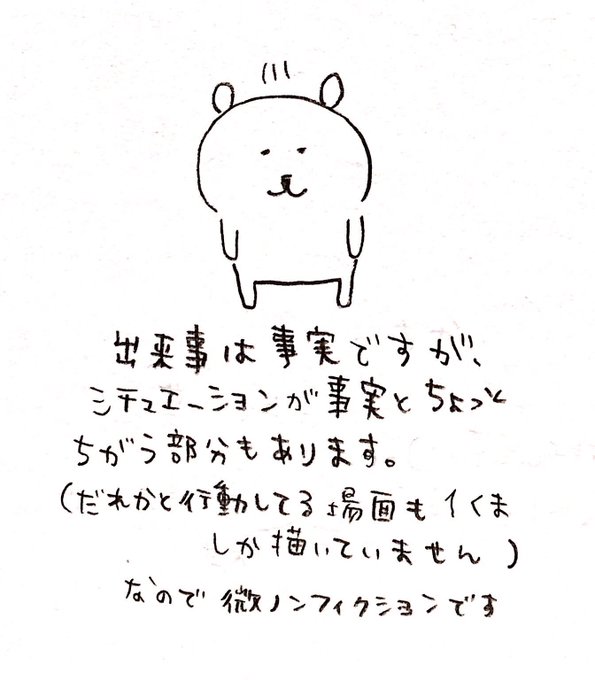 出来事は事実ですが、
シチュエーションが事実とちょっと
ちがう部分もあります。
(だれかと行動してる場面も1くま
しか描いていません)
なので微ノンフィクションです